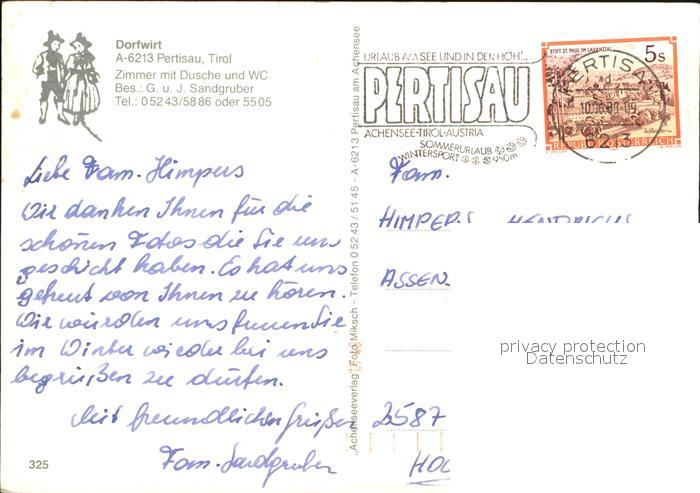 Dorfwirt
A-6213 Pertisau, Tirol
Zimmer mit Dusche und WC
Bes.: G. u. J. Sandgruber
Tel.: 05243/5886 oder 5505
Liebe Fam. Himpers
Wir danken Ihnen für die
schönen Fotos die Sie uns
geschickt haben. Es hat uns
gefreut von Ihnen zu hören.
Wir würden uns freuen Sie
im Winter wieder bei uns
begrüßen zu dürfen.
Mit freundlichen Grüßen
Fam. Sandgruber
325
„Achenseeverlag" Foto Miksch - Telefon 05243/5145 - A-6213 Pertisau am Achensee
URLAUB AM SEE UND IN DER HÖH'...
PERTISAU
ACHENSEE-TIROL-AUSTRIA
SOMMERURLAUB
WINTERSPORT 950m
STIFT ST. PAUL IM LAVANTTAL
5s
PERTISAU
REPUBLIK ÖSTERREICH
6213
Fam.
HIMPERS HENDRICUS
ASSEN
privacy protection
Datenschutz
2587
HO